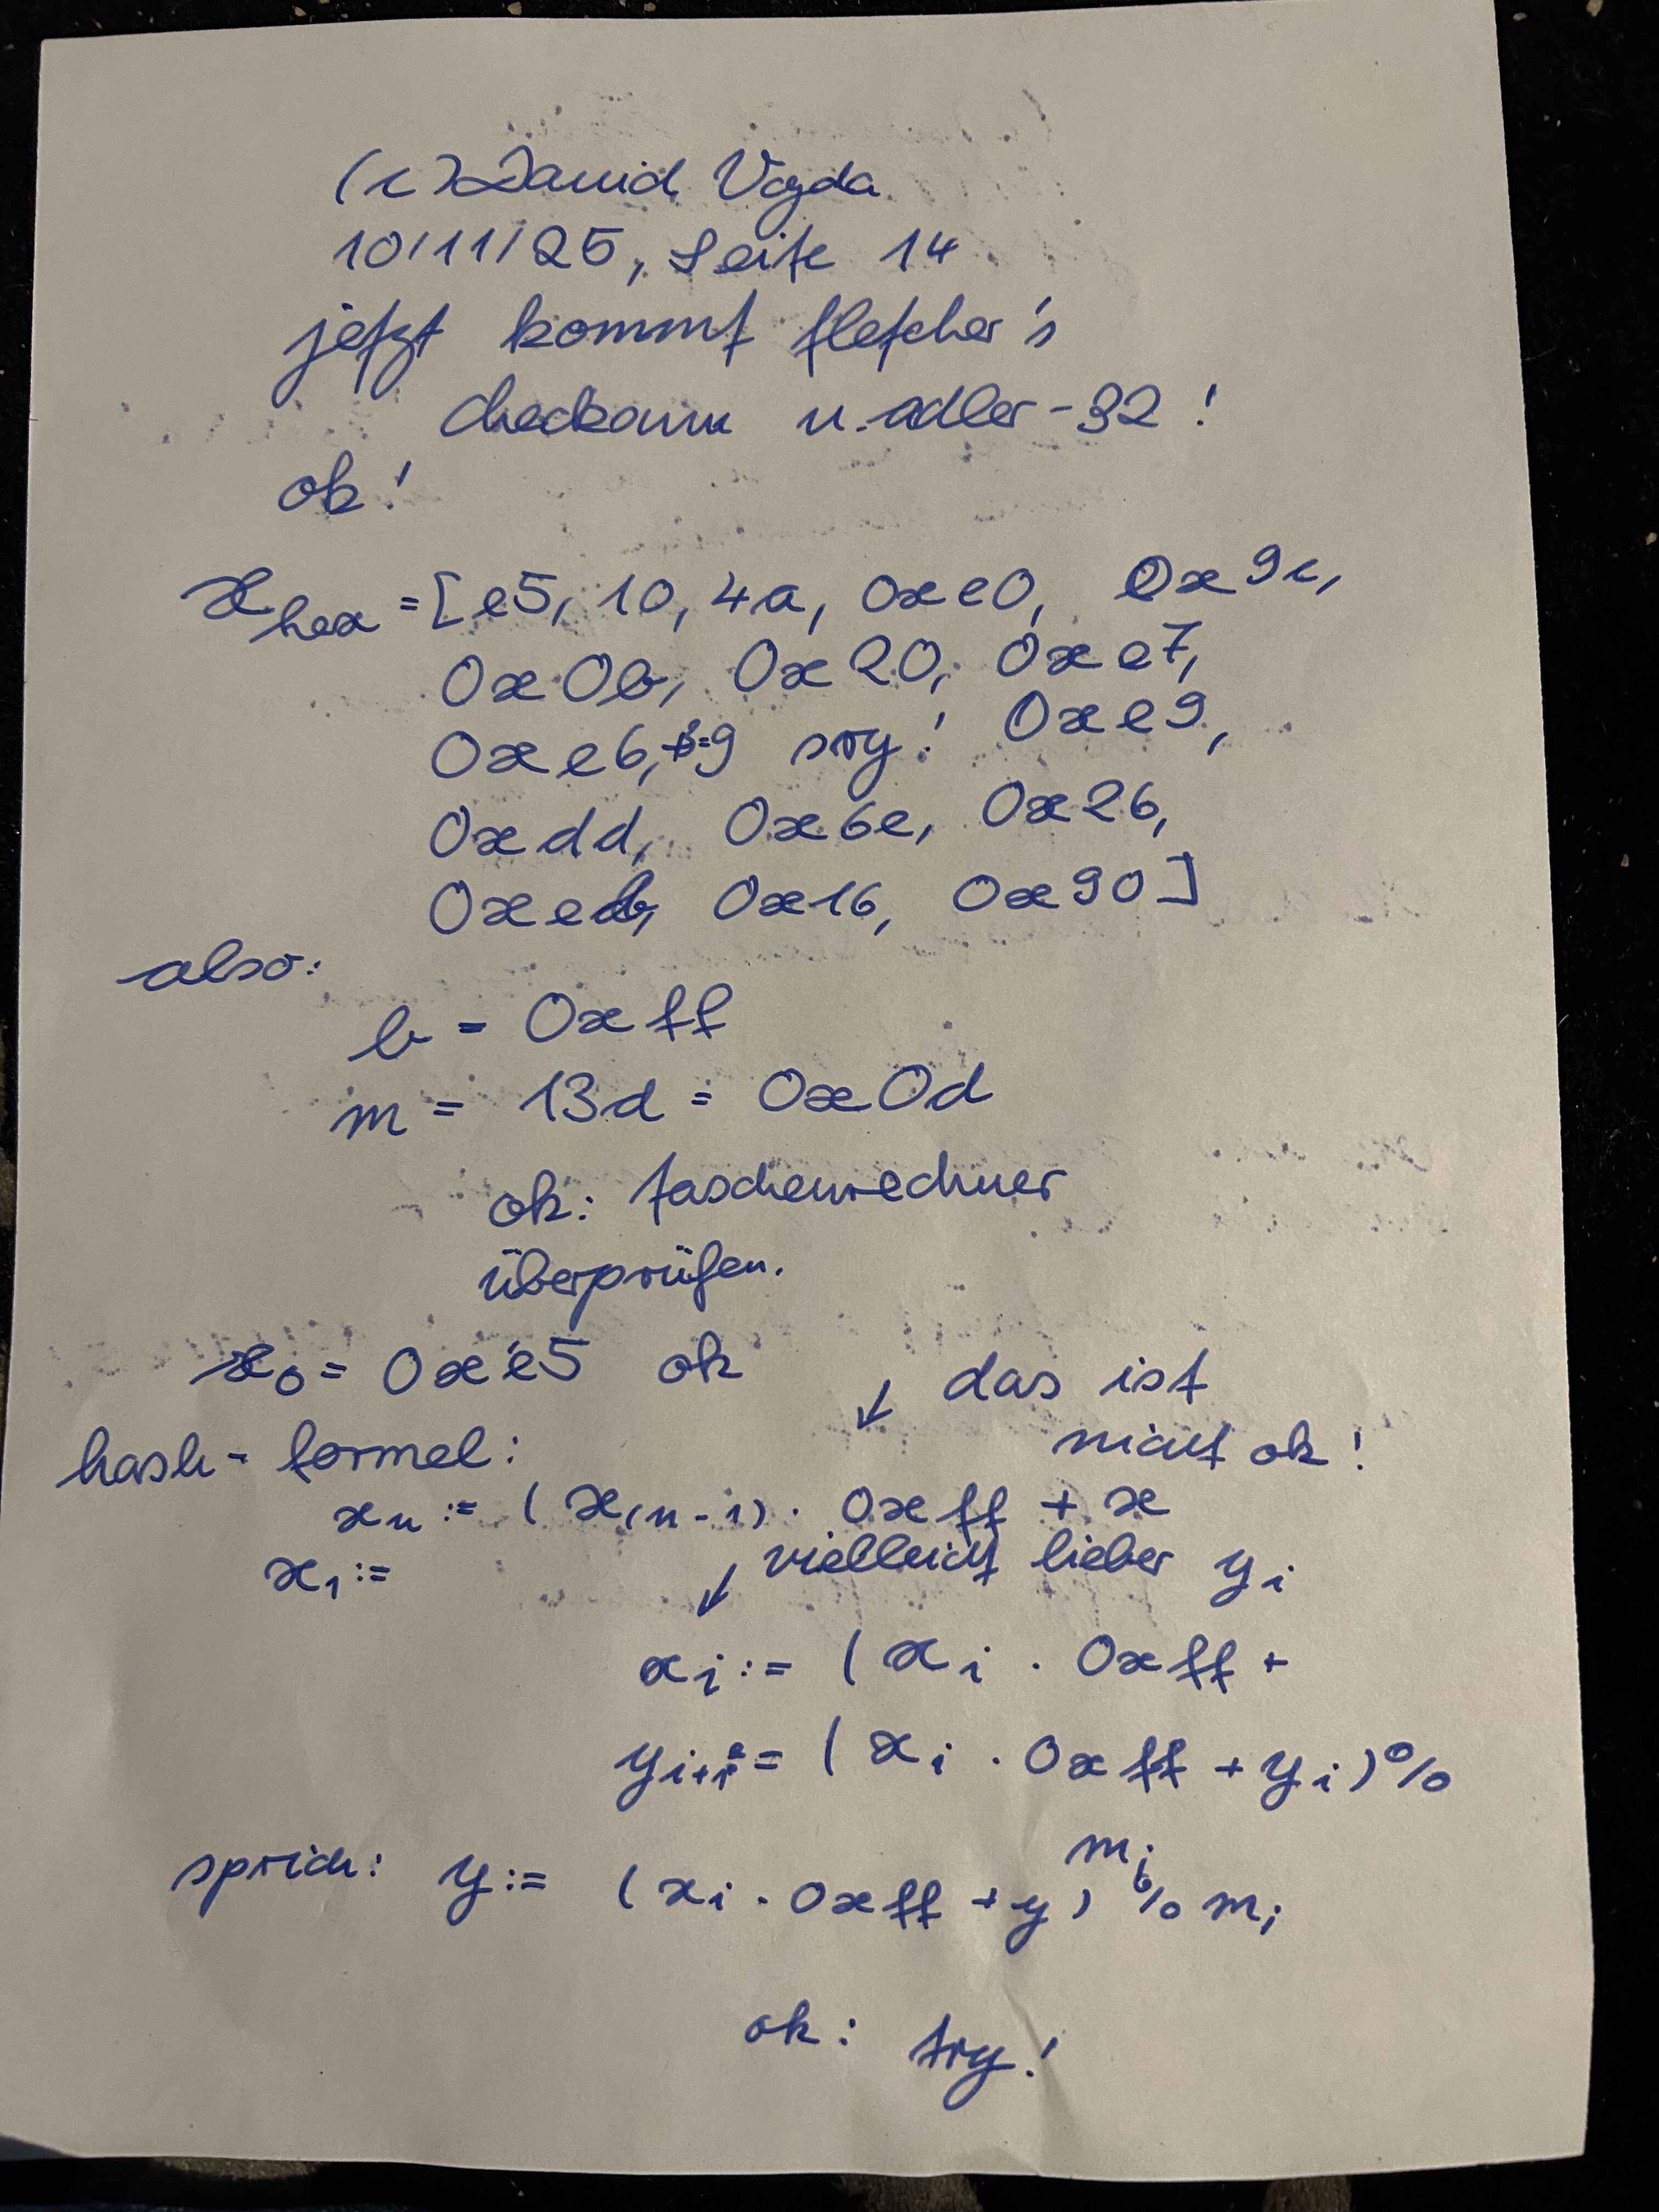 (c) David Vajda
10/11/25, Seite 14
jetzt kommt fletcher's
checksum u. adler-32!
ok!
x hex = [e5, 10, 4a, 0xe0, 0x9c,
0x0b, 0x20, 0xe7,
0xe6, sry! 0xe9,
0xdd, 0x6e, 0x26,
0xeb, 0x16, 0x90]
also:
b = 0xff
m = 13d = 0x0d
ok: taschenrechner
überprüfen.
x0 = 0xe5 ok
↙ das ist
nicht ok!
hash-formel:
xn := (x(n-1) · 0xff + x
x1 :=
↙ vielleicht lieber yi
xi := (xi · 0xff +
yi+1 = (xi · 0xff + yi) %
mi
sprich: y := (xi · 0xff + y) % mi
ok: try!